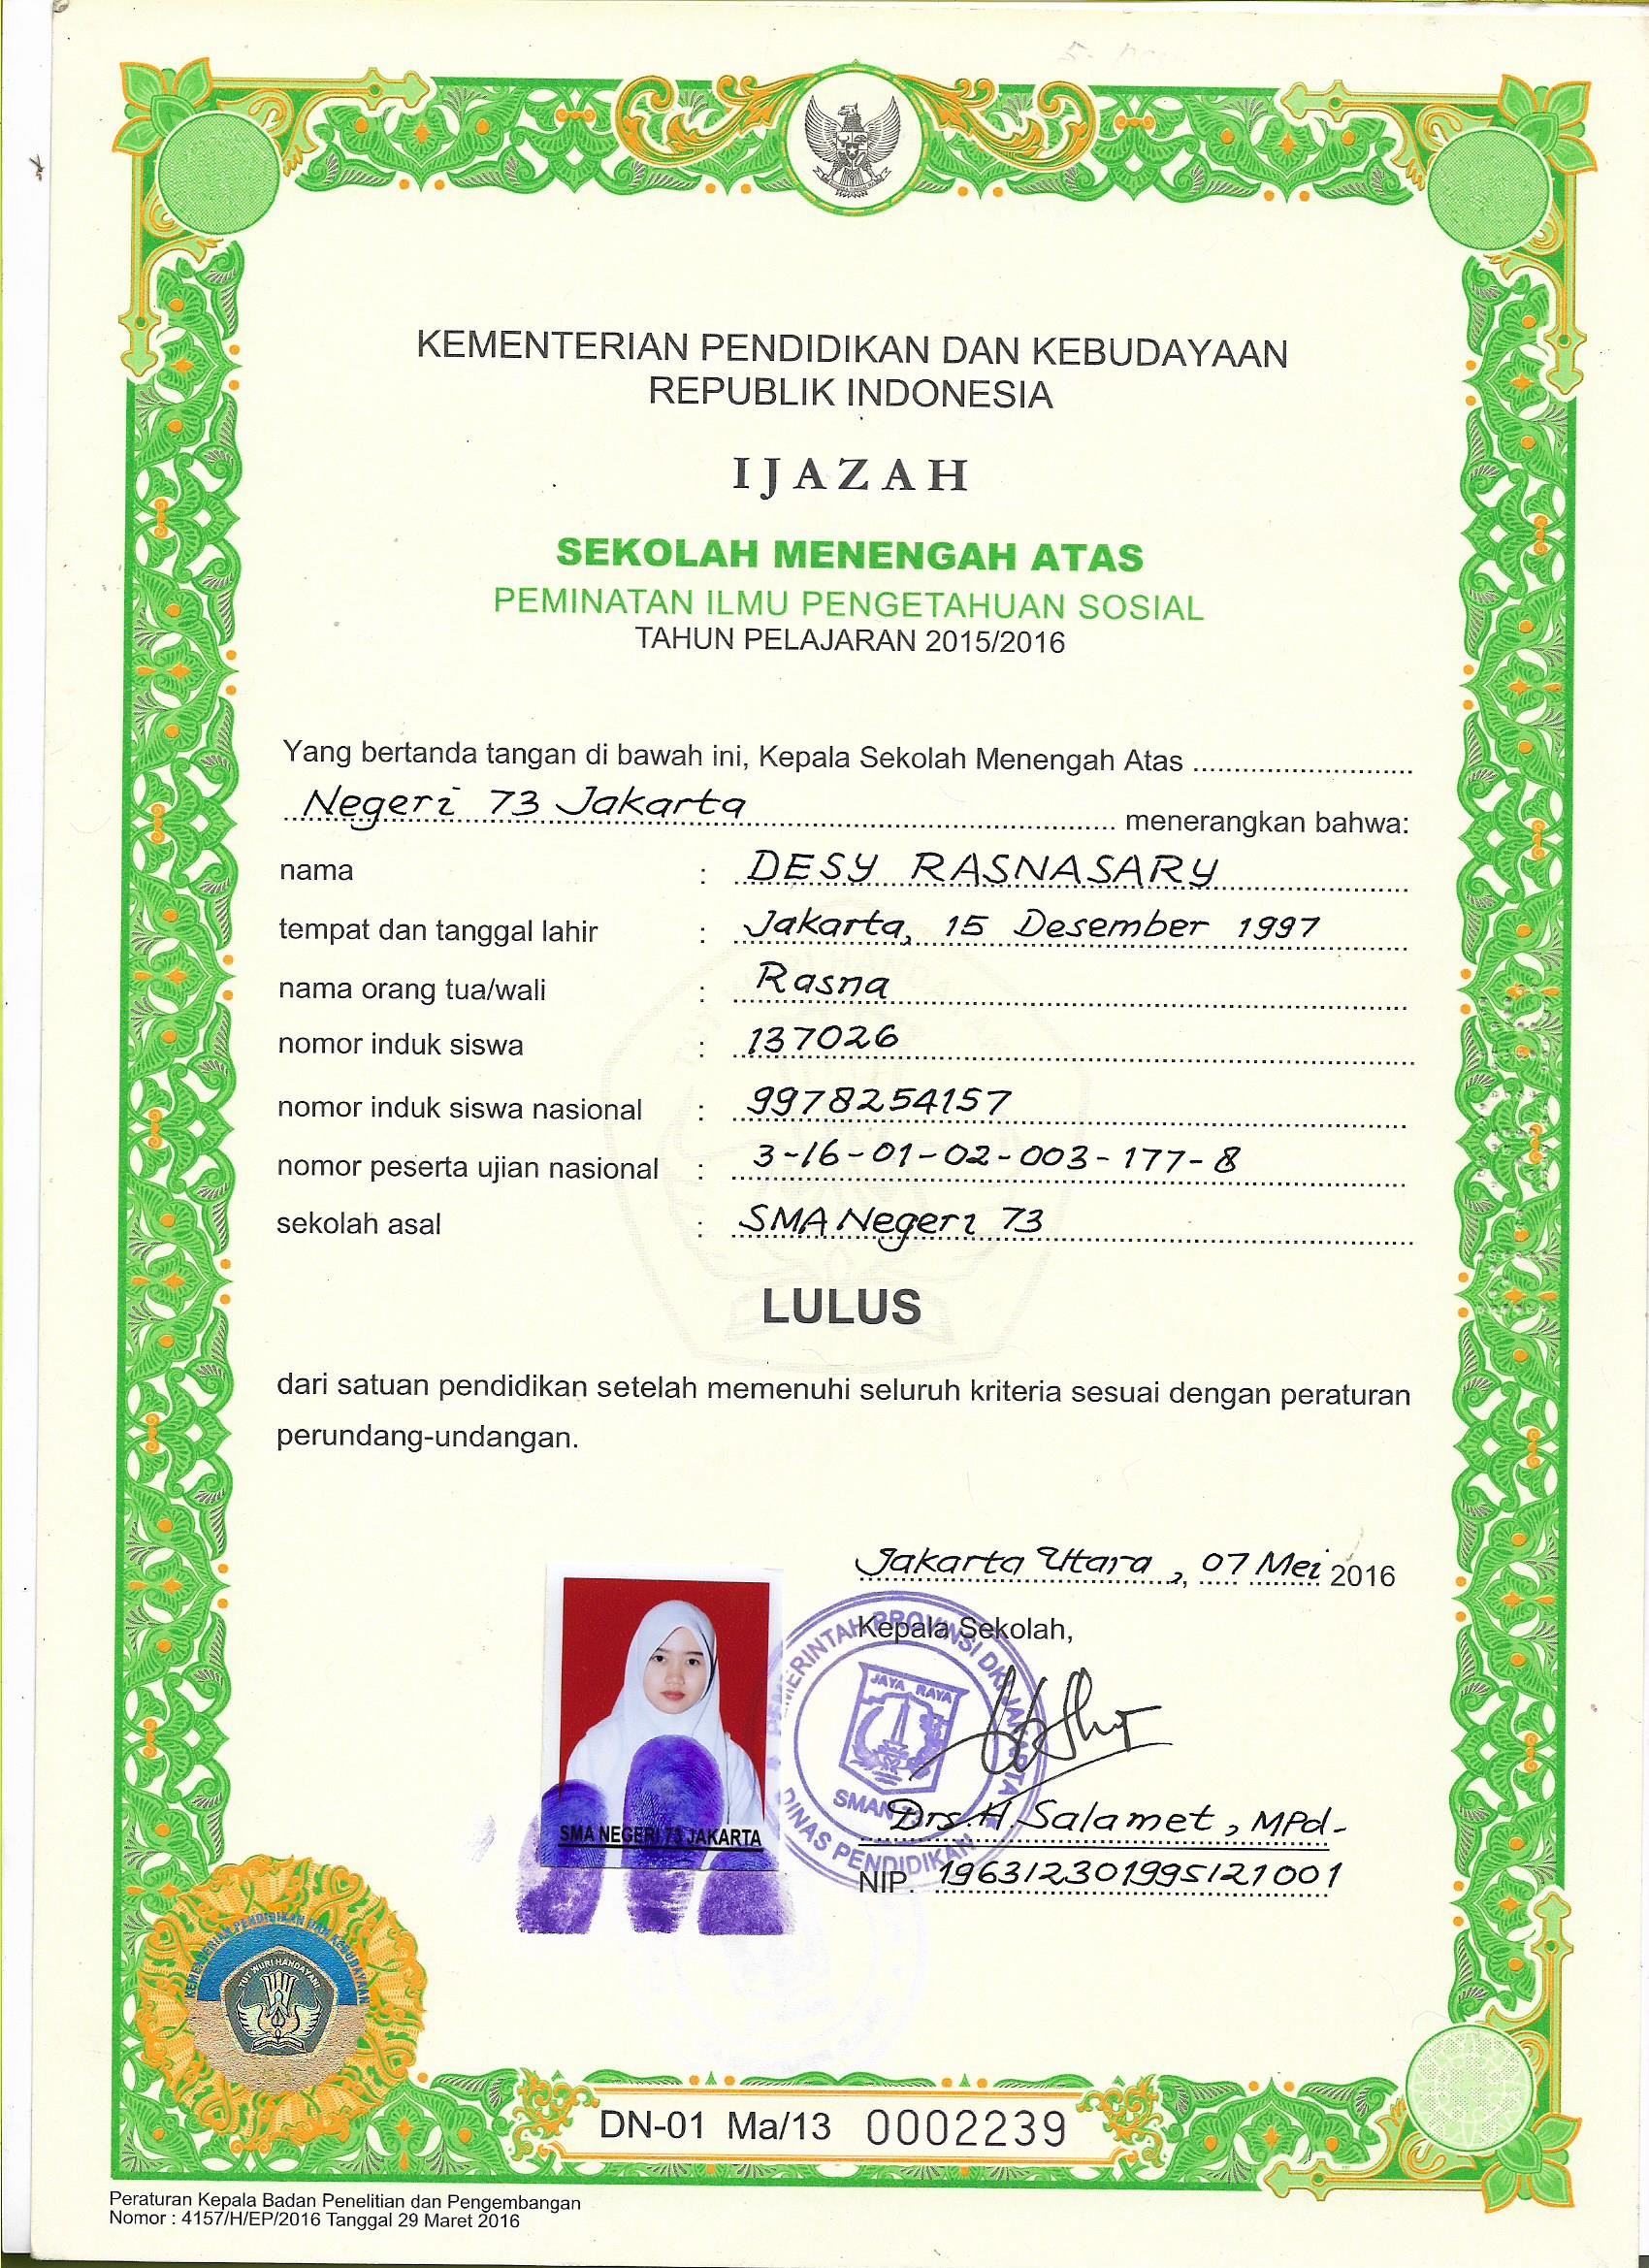 KEMENTERIAN PENDIDIKAN DAN KEBUDAYAAN
REPUBLIK INDONESIA
IJAZAH
SEKOLAH MENENGAH ATAS
PEMINATAN ILMU PENGETAHUAN SOSIAL
TAHUN PELAJARAN 2015/2016
Yang bertanda tangan di bawah ini, Kepala Sekolah Menengah Atas ............................
Negeri 73 Jakarta ................................................ menerangkan bahwa:
nama : DESY RASNASARY
tempat dan tanggal lahir : Jakarta, 15 Desember 1997
nama orang tua/wali : Rasna
nomor induk siswa : 137026
nomor induk siswa nasional : 9978254157
nomor peserta ujian nasional : 3-16-01-02-003-177-8
sekolah asal : SMA Negeri 73
LULUS
dari satuan pendidikan setelah memenuhi seluruh kriteria sesuai dengan peraturan
perundang-undangan.
Jakarta Utara, 07 Mei 2016
Kepala Sekolah,
PEMERINTAH PROVINSI DKI JAKARTA
JAYA RAYA
SMAN 73
DINAS PENDIDIKAN
Drs. H. Salamet, MPd-
NIP. 196312301995121001
SMA NEGERI 73 JAKARTA
KEMENTERIAN PENDIDIKAN DAN KEBUDAYAAN
TUT WURI HANDAYANI
DN-01 Ma/13 0002239
Peraturan Kepala Badan Penelitian dan Pengembangan
Nomor : 4157/H/EP/2016 Tanggal 29 Maret 2016